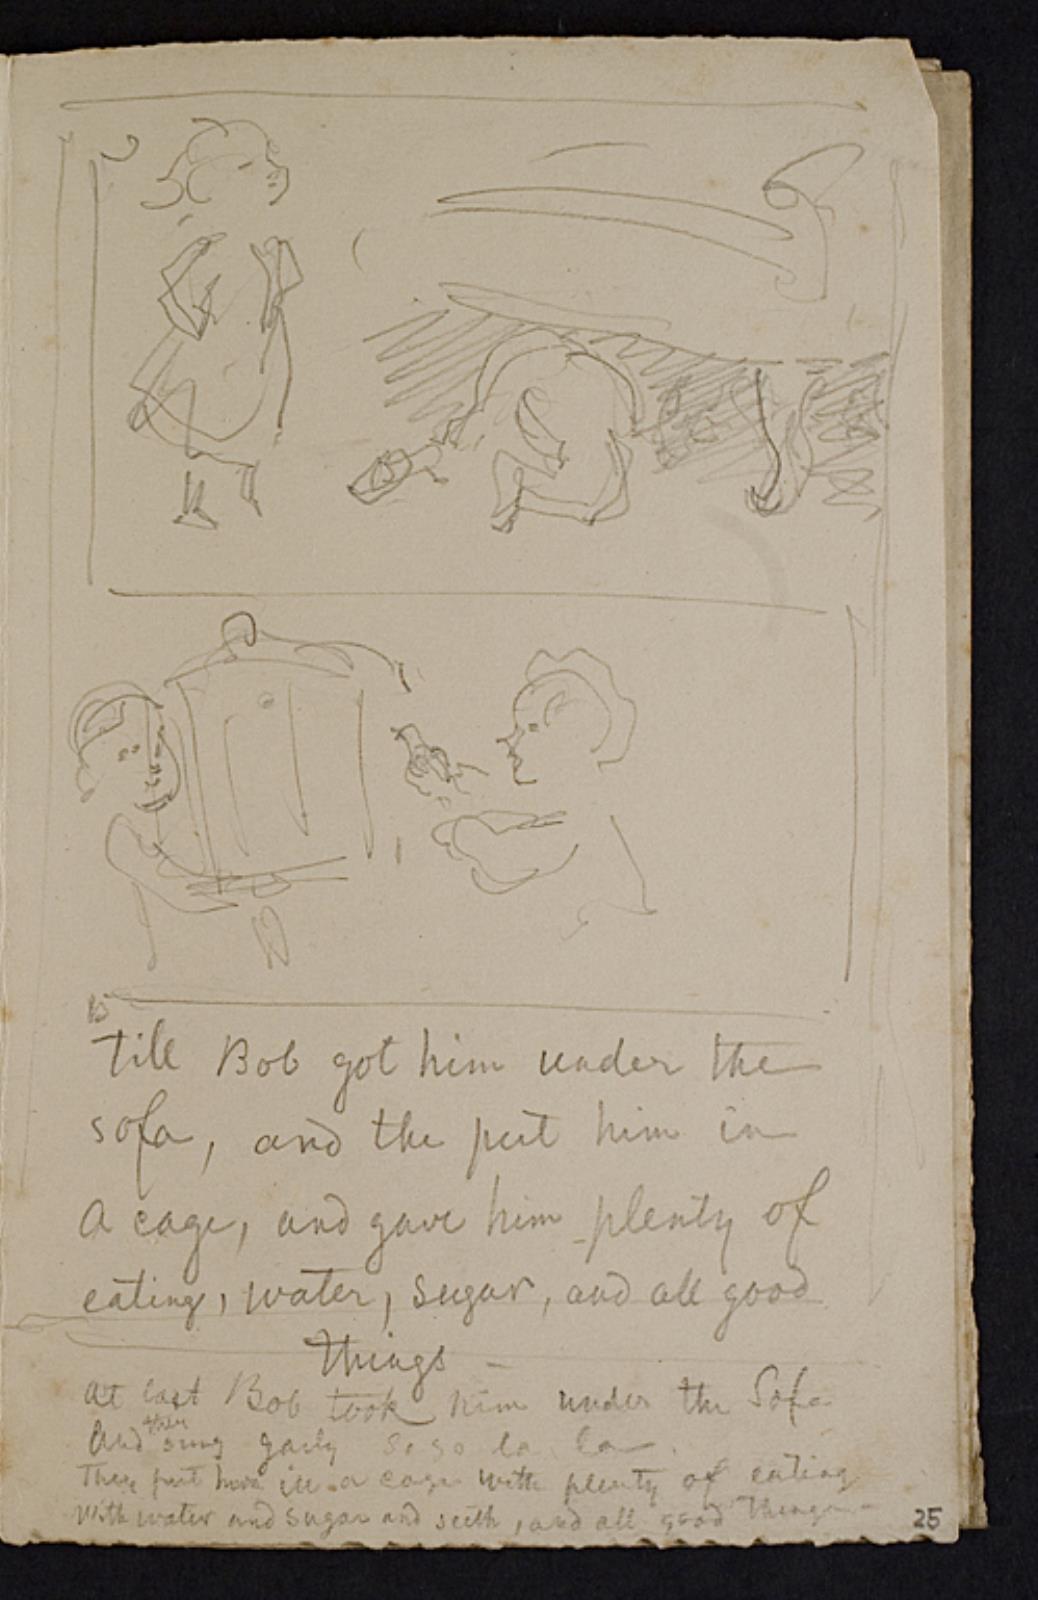 till Bob got him under the
sofa, and the put him in
a cage, and gave him plenty of
eating, water, sugar, and all good
things -
at last Bob took him under the Sofa
And sung gaily so so la la
They put him in a cage with plenty of eating
With water and sugar and seeth, and all good things -
25